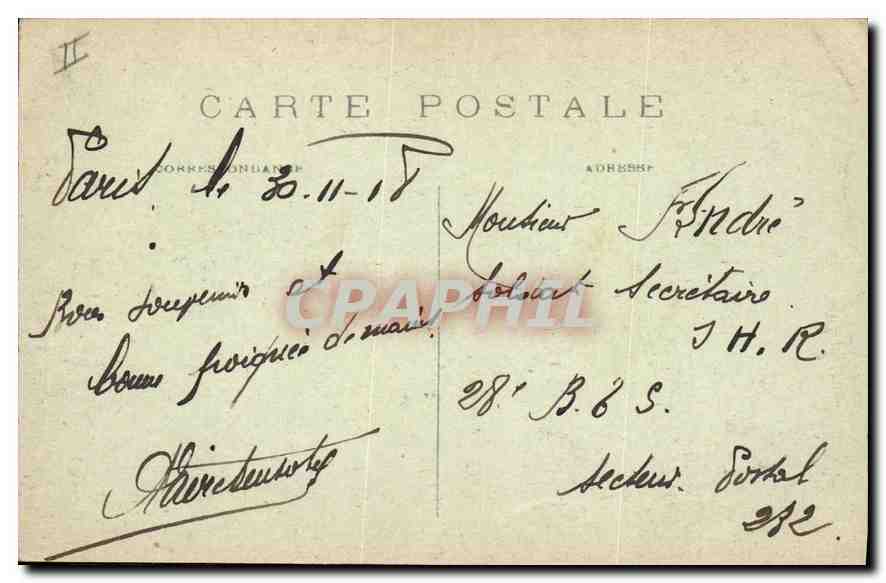 II
CARTE POSTALE
CORRESPONDANCE
ADRESSE
Paris le 30-11-18
Bon souvenir et
bonne poignée de main
Monsieur André
Soldat Secrétaire
H. R.
28e B. S.
Secteur Postal
212
CPAPHIL